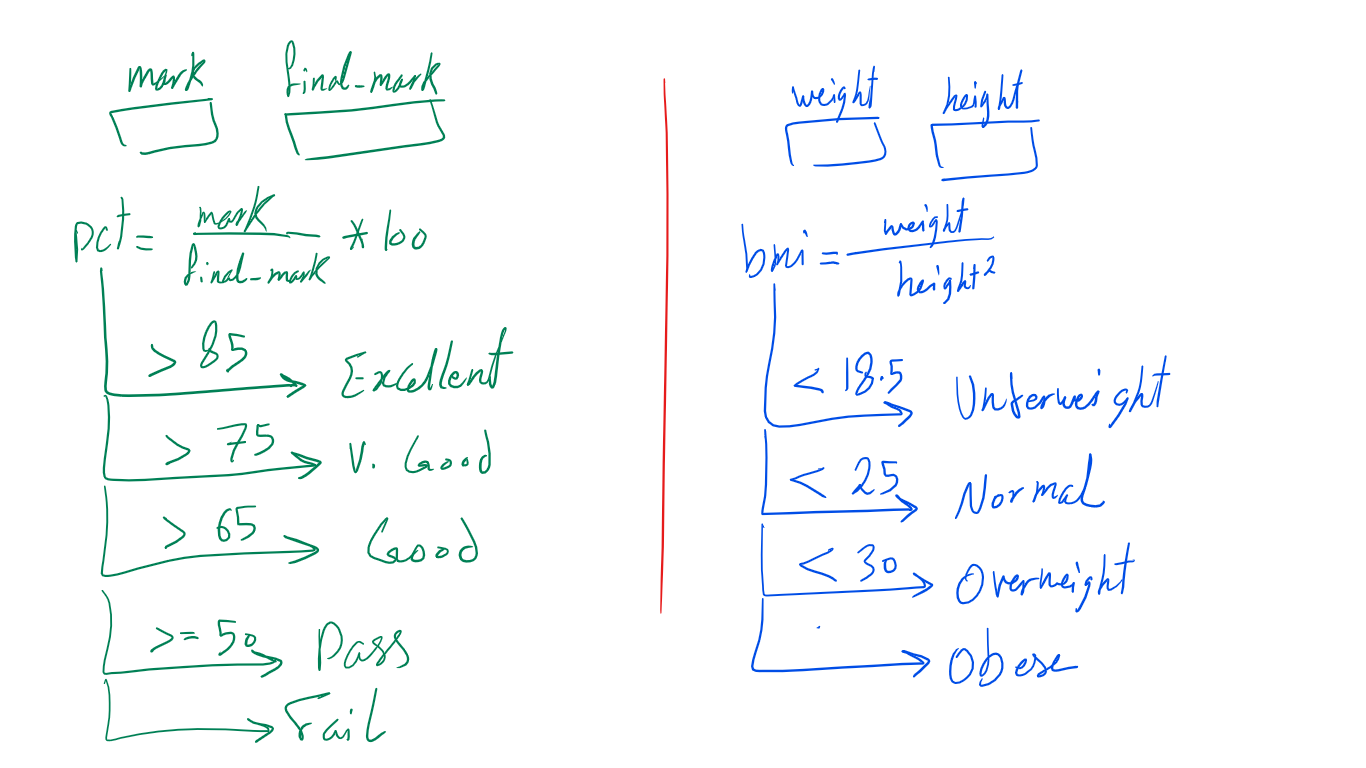 mark final_mark
pct = mark / final_mark * 100
> 85 Excellent
> 75 V. Good
> 65 Good
>= 50 Pass
Fail
weight height
bmi = weight / height²
< 18.5 Unterweight
< 25 Normal
< 30 Overweight
Obese